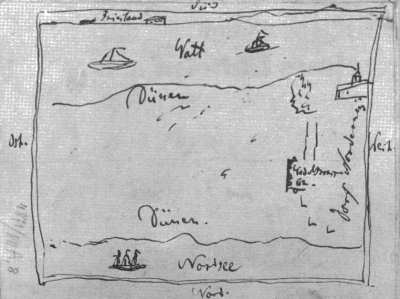 Süd
Friesland
Watt
Dünen
Ost.
West.
Dorf Norderney
Dünen.
Nordsee
Nord.